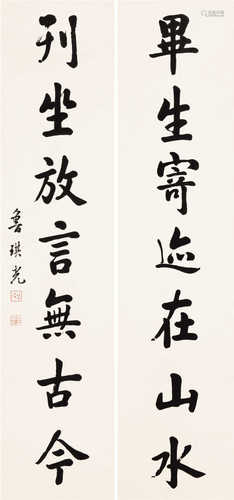 畢生寄迹在山水
刊坐放言無古今
魯琪光